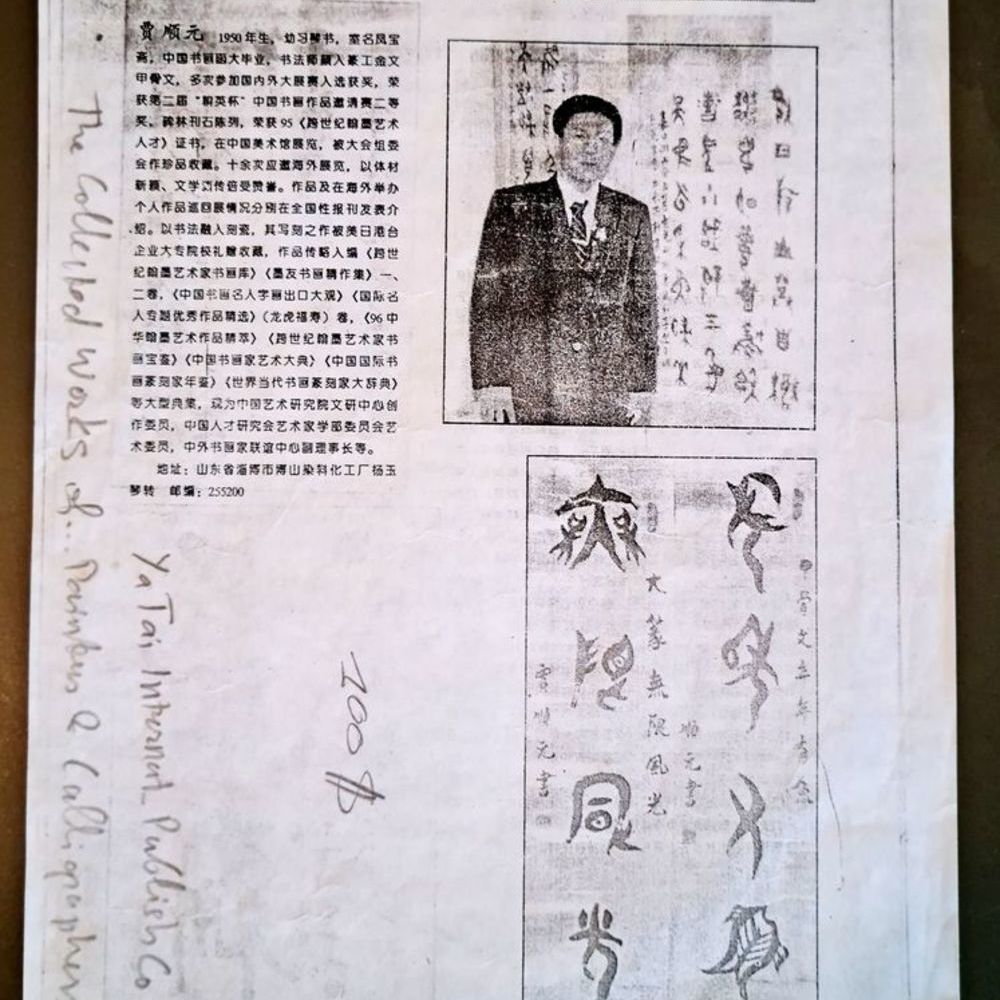 贾顺元 1950年生，幼习琴书，室名凤宝
斋，中国书画函大毕业，书法师颜入篆工金文
甲骨文，多次参加国内外大展赛入选获奖，荣
获第二届“翰英杯”中国书画作品邀请赛二等
奖，碑林刊石陈列，荣获95《跨世纪翰墨艺术
人才》证书，在中国美术馆展览，被大会组委
会作珍品收藏。十余次应邀海外展览，以体材
新颖、文学流传倍受赞誉。作品及在海外举办
个人作品巡回展情况分别在全国性报刊发表介
绍。以书法融入刻瓷，其写刻之作被美日港台
企业大专院校礼赠收藏，作品传略入编《跨世
纪翰墨艺术家书画库》《墨友书画精作集》一、
二卷，《中国书画名人字画出口大观》《国际名
人专题优秀作品精选》（龙虎福寿）卷，《96中
华翰墨艺术作品精萃》《跨世纪翰墨艺术家书
画宝鉴》《中国书画家艺术大典》《中国国际书
画篆刻家年鉴》《世界当代书画篆刻家大辞典》
等大型典集，现为中国艺术研究院文研中心创
作委员，中国人才研究会艺术家学部委员会艺
术委员，中外书画家联谊中心副理事长等。
地址：山东省淄博市博山染料化工厂杨玉
琴转 邮编：255200
The Collected Works of... Painters & Calligraphers
YaTai Internat. Publish Co
200 $
甲骨文
顺元书
大篆無限風光
賈順元書
無
限
風
光